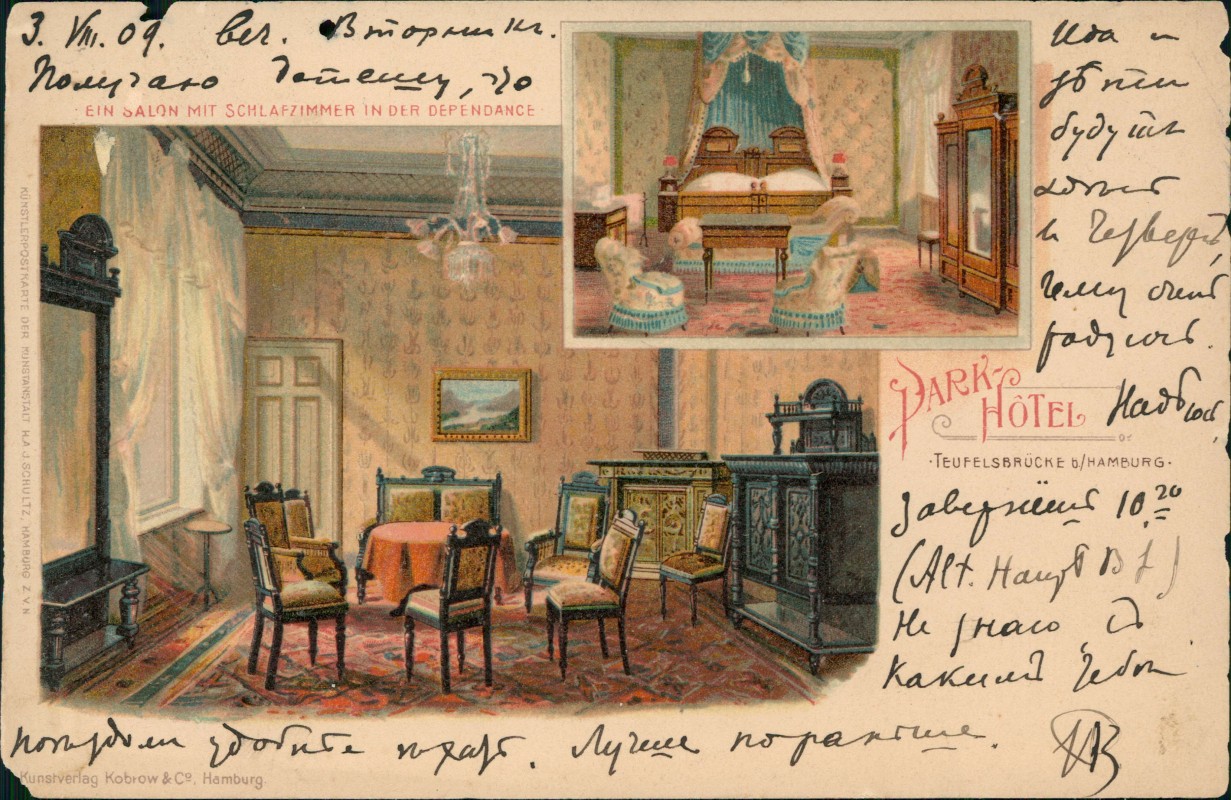 3. VIII. 09. веч. Вторникъ.
Получаю депешу, что
Ида и
дѣти
будутъ
здѣсь
въ Четвергъ,
чему очень
радуюсь.
EIN SALON MIT SCHLAFZIMMER IN DER DEPENDANCE
KÜNSTLERPOSTKARTE DER KUNSTANSTALT H.A.J. SCHULTZ, HAMBURG Z.V.N.
PARK-
HÔTEL
TEUFELSBRÜCKE b/HAMBURG.
Надѣюсь,
10.20
(Alt.
Не знаю, съ
какимъ тебѣ
поѣздомъ удобнѣе ѣхать. Лучше пораньше.
Kunstverlag Kobrow & Co., Hamburg.